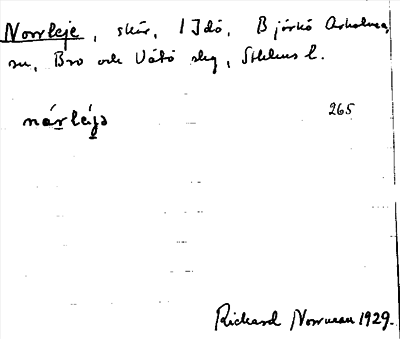 Norrleje, skär, 1 Idö, Björkö Arholma
sn, Bro och Vätö slg, Sthlms l.
nárlèja
265
Rickard Norrman 1929.